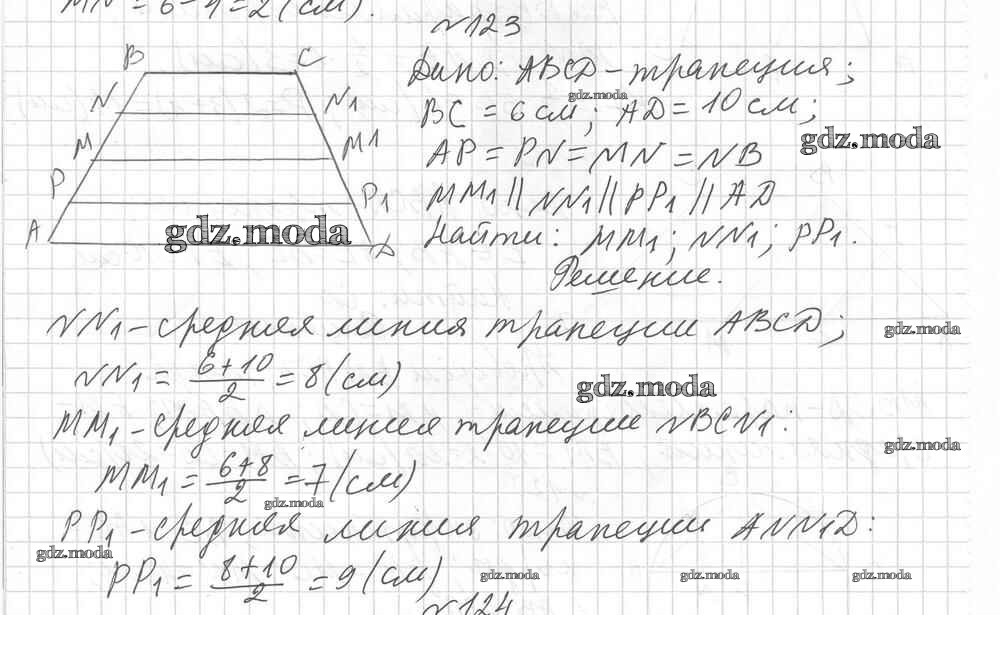 MN = 6 - 4 = 2 (см).
№123
B C
N N1
M M1
P P1
A D
Дано: ABCD - трапеция;
gdz.moda
BC = 6 см; AD = 10 см;
gdz.moda
AP = PN = MN = NB
MM1 || NN1 || PP1 || AD
gdz.moda
Найти: MM1; NN1; PP1.
Решение.
NN1 - средняя линия трапеции ABCD;
gdz.moda
NN1 = (6+10)/2 = 8 (см)
gdz.moda
MM1 - средняя линия трапеции NBCN1:
gdz.moda
MM1 = (6+8)/2 = 7 (см)
gdz.moda
PP1 - средняя линия трапеции ANN1D:
gdz.moda
PP1 = (8+10)/2 = 9 (см)
gdz.moda gdz.moda gdz.moda
№124